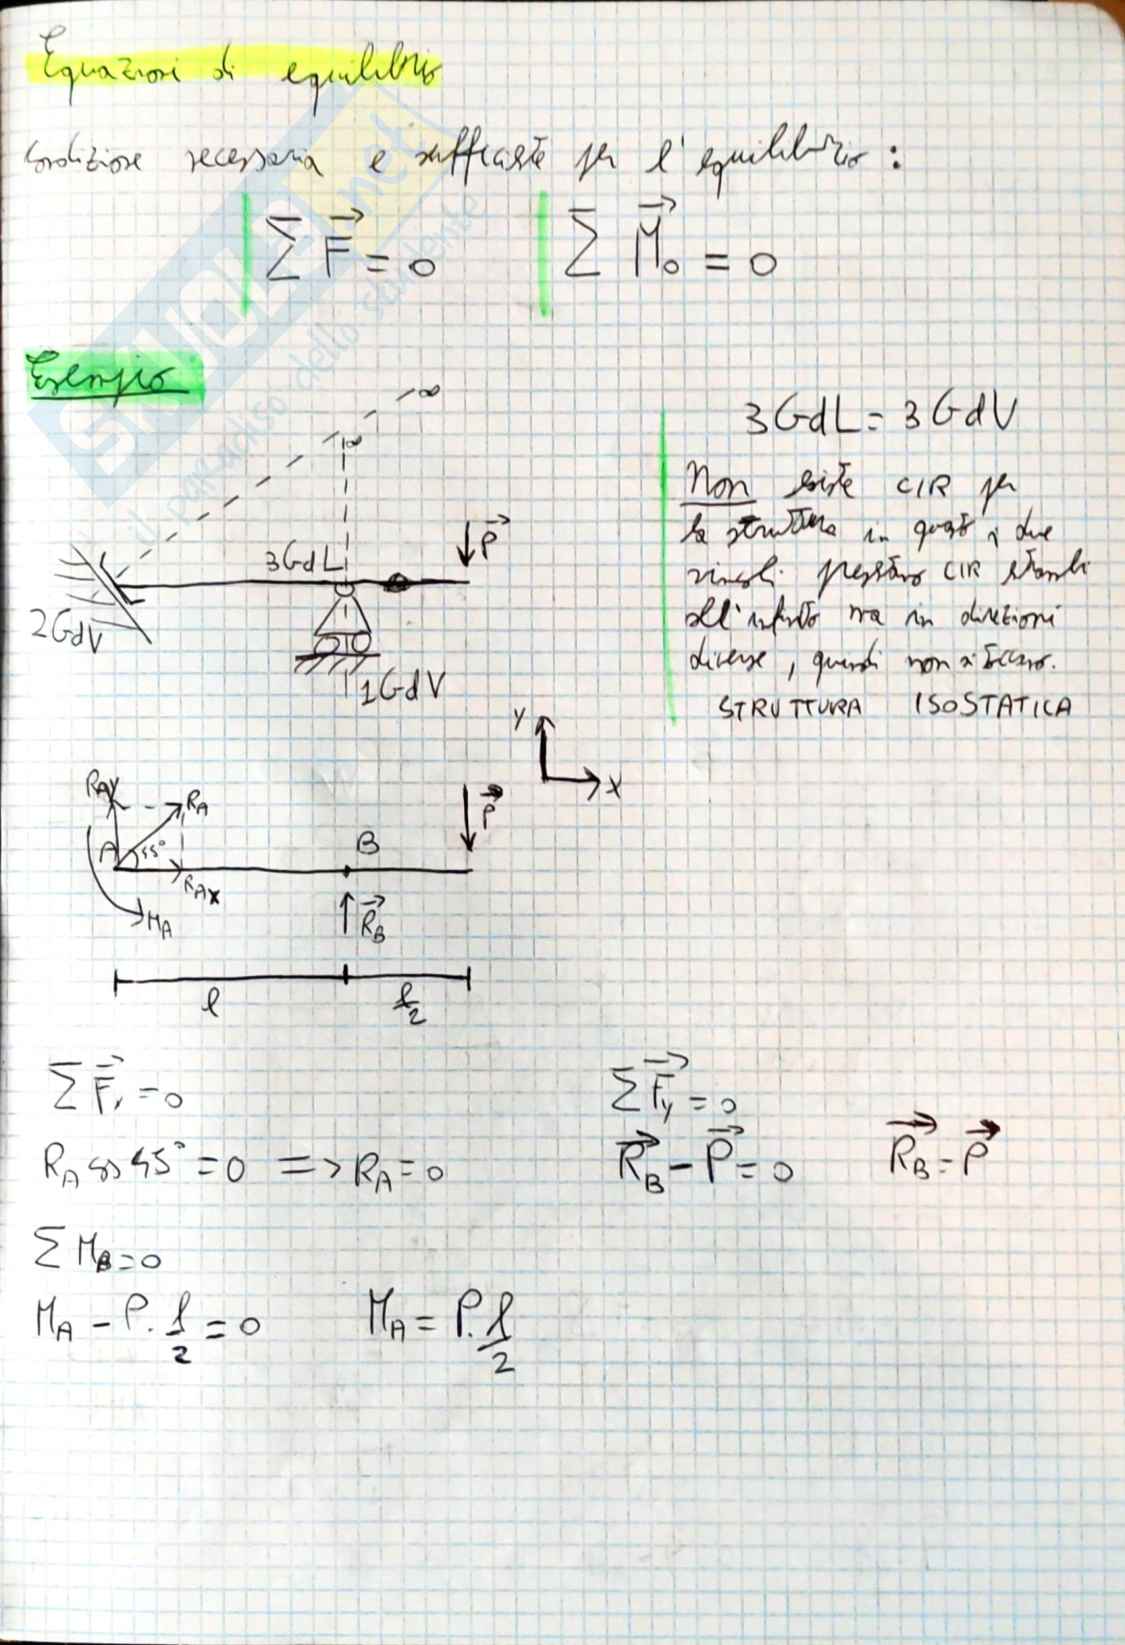 Equazioni di equilibrio
Condizione necessaria e sufficiente per l'equilibrio:
∑ F⃗ = 0
∑ M⃗o = 0
SKUOLA.net
il paradiso dello studente
Esempio
∞
∞
3GdL
P⃗
2GdV
1GdV
3GdL = 3GdV
Non esiste CIR per
la struttura in quanto i due
vincoli presentano CIR entrambi
all'infinito ma in direzioni
diverse, quindi non esistono.
STRUTTURA ISOSTATICA
Y
X
RAY
RA
A
45°
RAX
MA
B
R⃗B
P⃗
l
l/2
∑ F⃗x = 0
RA cos 45° = 0 => RA = 0
∑ F⃗y = 0
R⃗B - P⃗ = 0
R⃗B = P⃗
∑ MB = 0
MA - P · l/2 = 0
MA = P · l/2